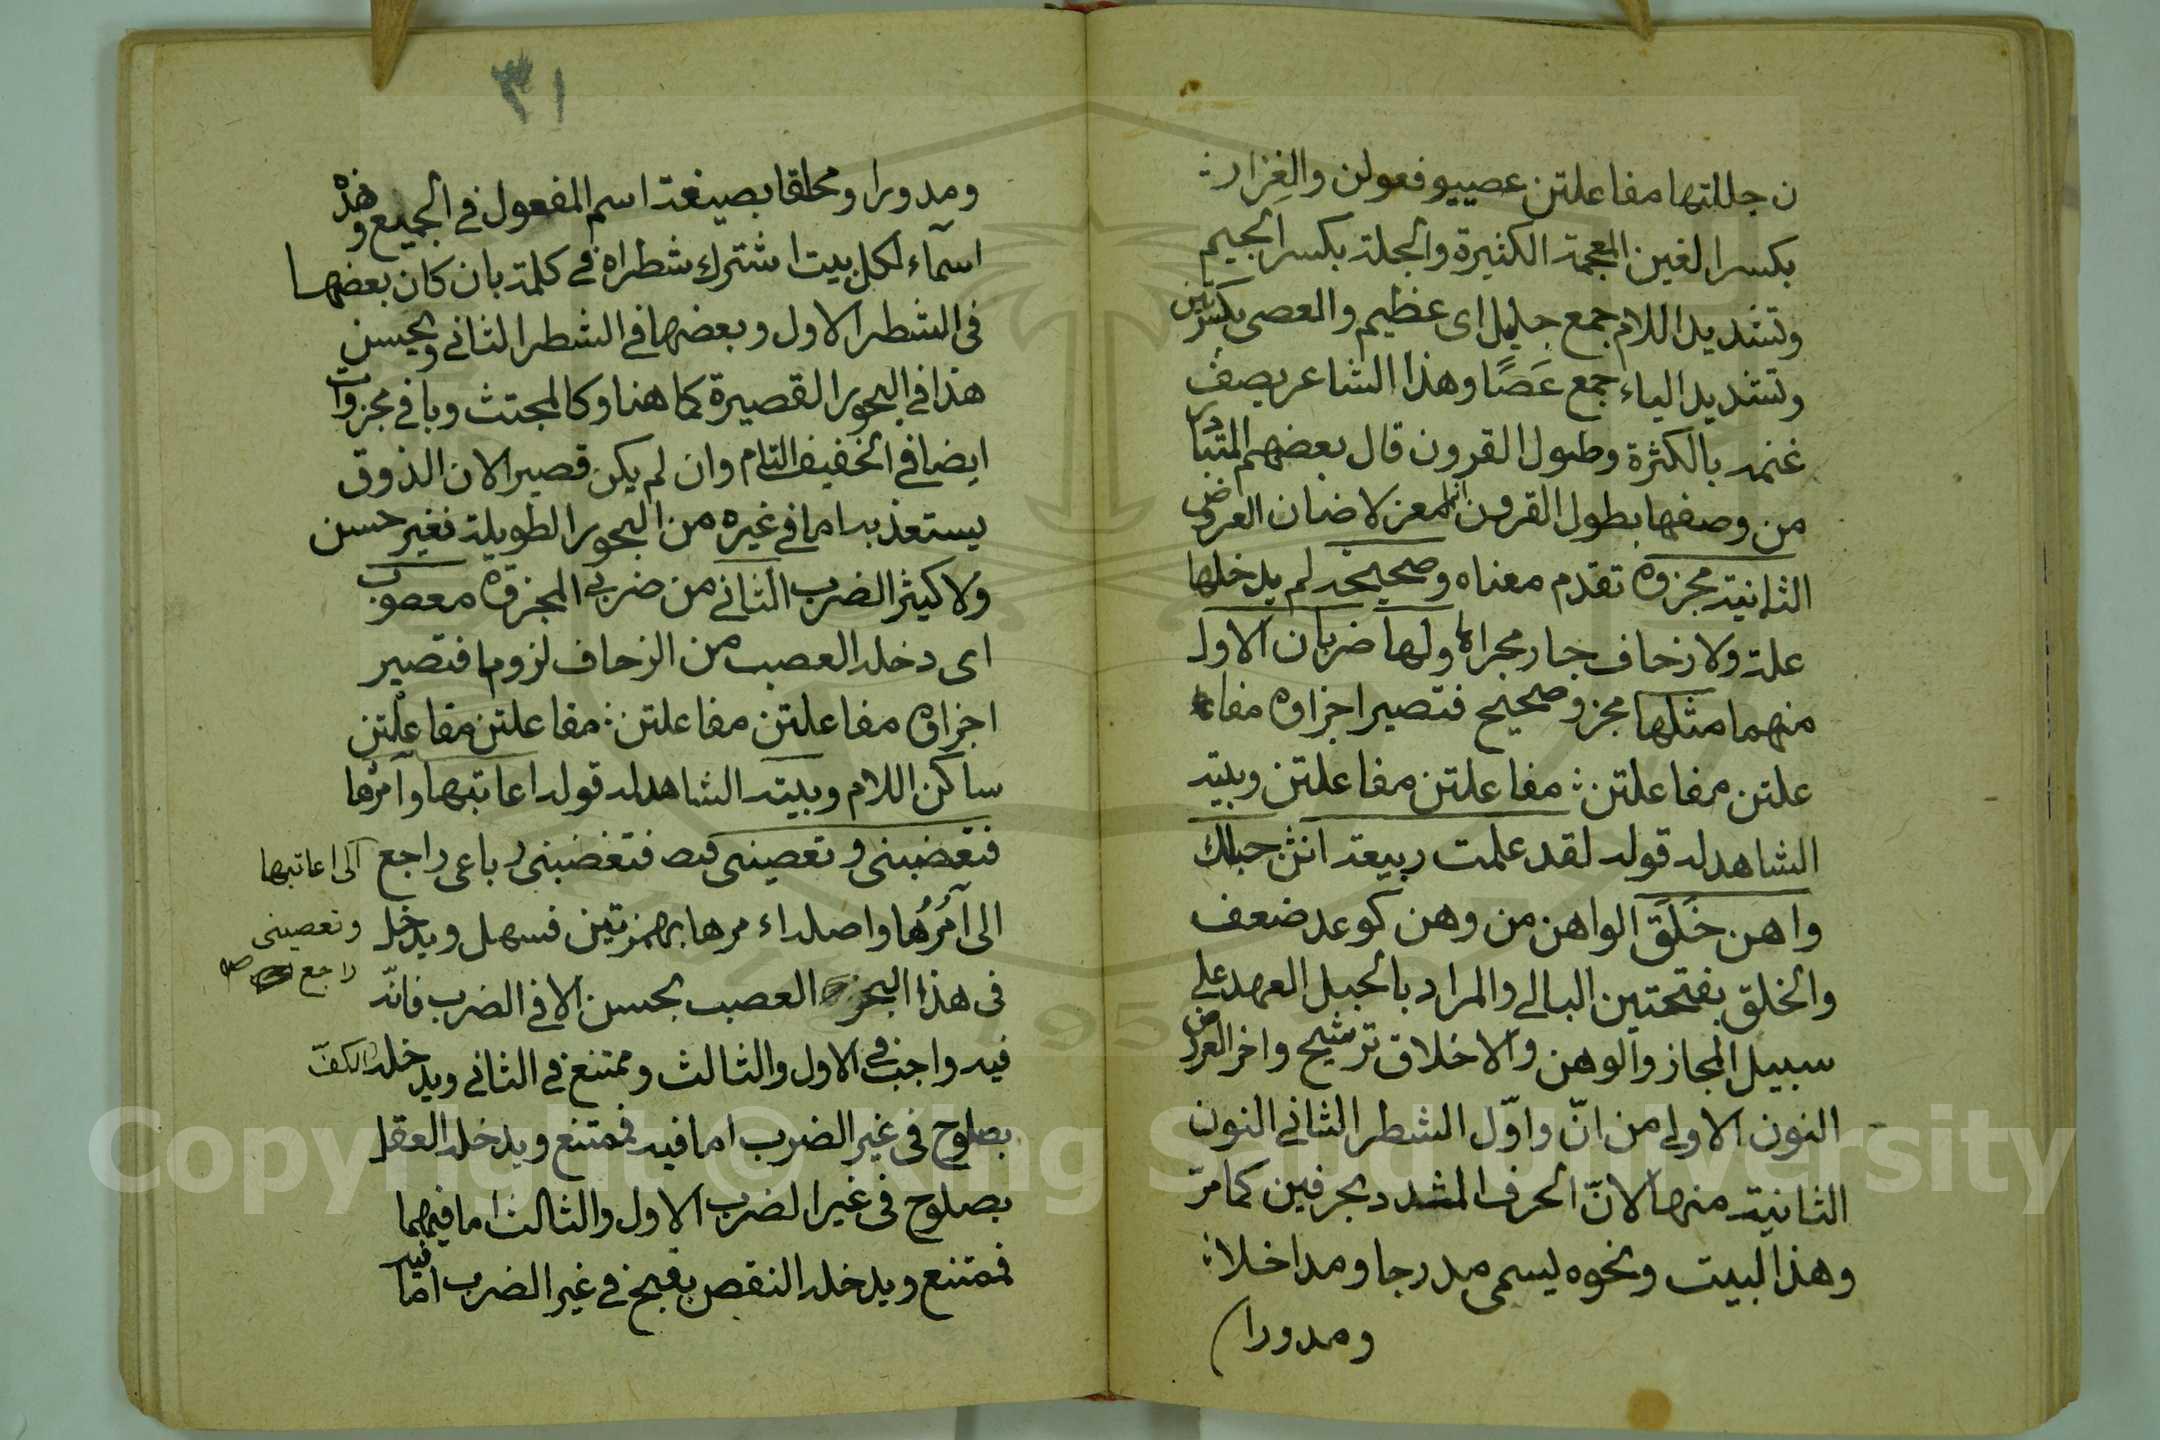 ن جللتها مفاعلتن عصييو فعولن والغِزار
بكسر الغين المعجمة الكثيرة والجلة بكسر الجيم
وتشديد اللام جمع جليل اى عظيم والعصى بكسرتين
وتشديد الياء جمع عَصًا وهذا الشاعر يصف
غنمه بالكثرة وطول القرون قال بعضهم المتبادر
من وصفها بطول القرون انها معز لا ضان العروض
الثانية مجزوة تقدم معناه وصحيحة لم يدخلها
علة ولا زحاف جار مجراها ولها ضربان الاول
منهما مثلها مجزو صحيح فتصير اجزاوه مفا
علتن مفاعلتن : مفاعلتن مفاعلتن وبيته
الشاهد له قوله لقد علمت ربيعة انّ حبلك
واهن خَلَق الواهن من وهن كوعد ضعف
والخلق بفتحتين البالي والمراد بالحبل العهد على
سبيل المجاز والوهن والاخلاق ترشيح واخر العروض
النون الاولى من انّ واوّل الشطر الثانى النون
الثانية منها لانّ الحرف المشدد بحرفين كما مرّ
وهذا البيت ونحوه يسمى مدرجا ومداخلا
ومدورا
٣١
ومدورا ومحلقا بصيغة اسم المفعول في الجميع وهذه
اسمآء لكل بيت اشترك شطراه في كلمة بان كان بعضها
فى الشطر الاول وبعضها في الشطر الثانى ويحسن
هذا في البحور القصيرة كما هنا وكالمجتث وباقى مجزوات
ايضا في الخفيف التام وان لم يكن قصيرا لان الذوق
يستعذبه اما في غيره من البحور الطويلة فغير حسن
ولا كثير الضرب الثانى من ضربى المجزوة معصوب
اى دخله العصب من الزحاف لزوما فتصير
اجزاؤه مفاعلتن مفاعلتن : مفاعلتن مفاعلْتن
ساكن اللام وبيته الشاهد له قوله اعاتبها وآمرها
فتغضبنى وتعصينى فيه فتغضبنى رباعى راجع الى اعاتبها
الى آمُرُها واصله اء مرها بهمزتين فسهل ويدخل وتعصينى
راجع صح
فى هذا البحر العصب بحسن الا فى الضرب فانّه
فيه واجب في الاول والثالث وممتنع في الثانى ويدخله الكفّ
بصلوح فى غير الضرب اما فيه فممتنع ويدخله العقل
بصلوح فى غير الضرب الاول والثالث اما فيهما
فممتنع ويدخله النقص بقبح في غير الضرب امّا فيه
Copyright © King Saud University